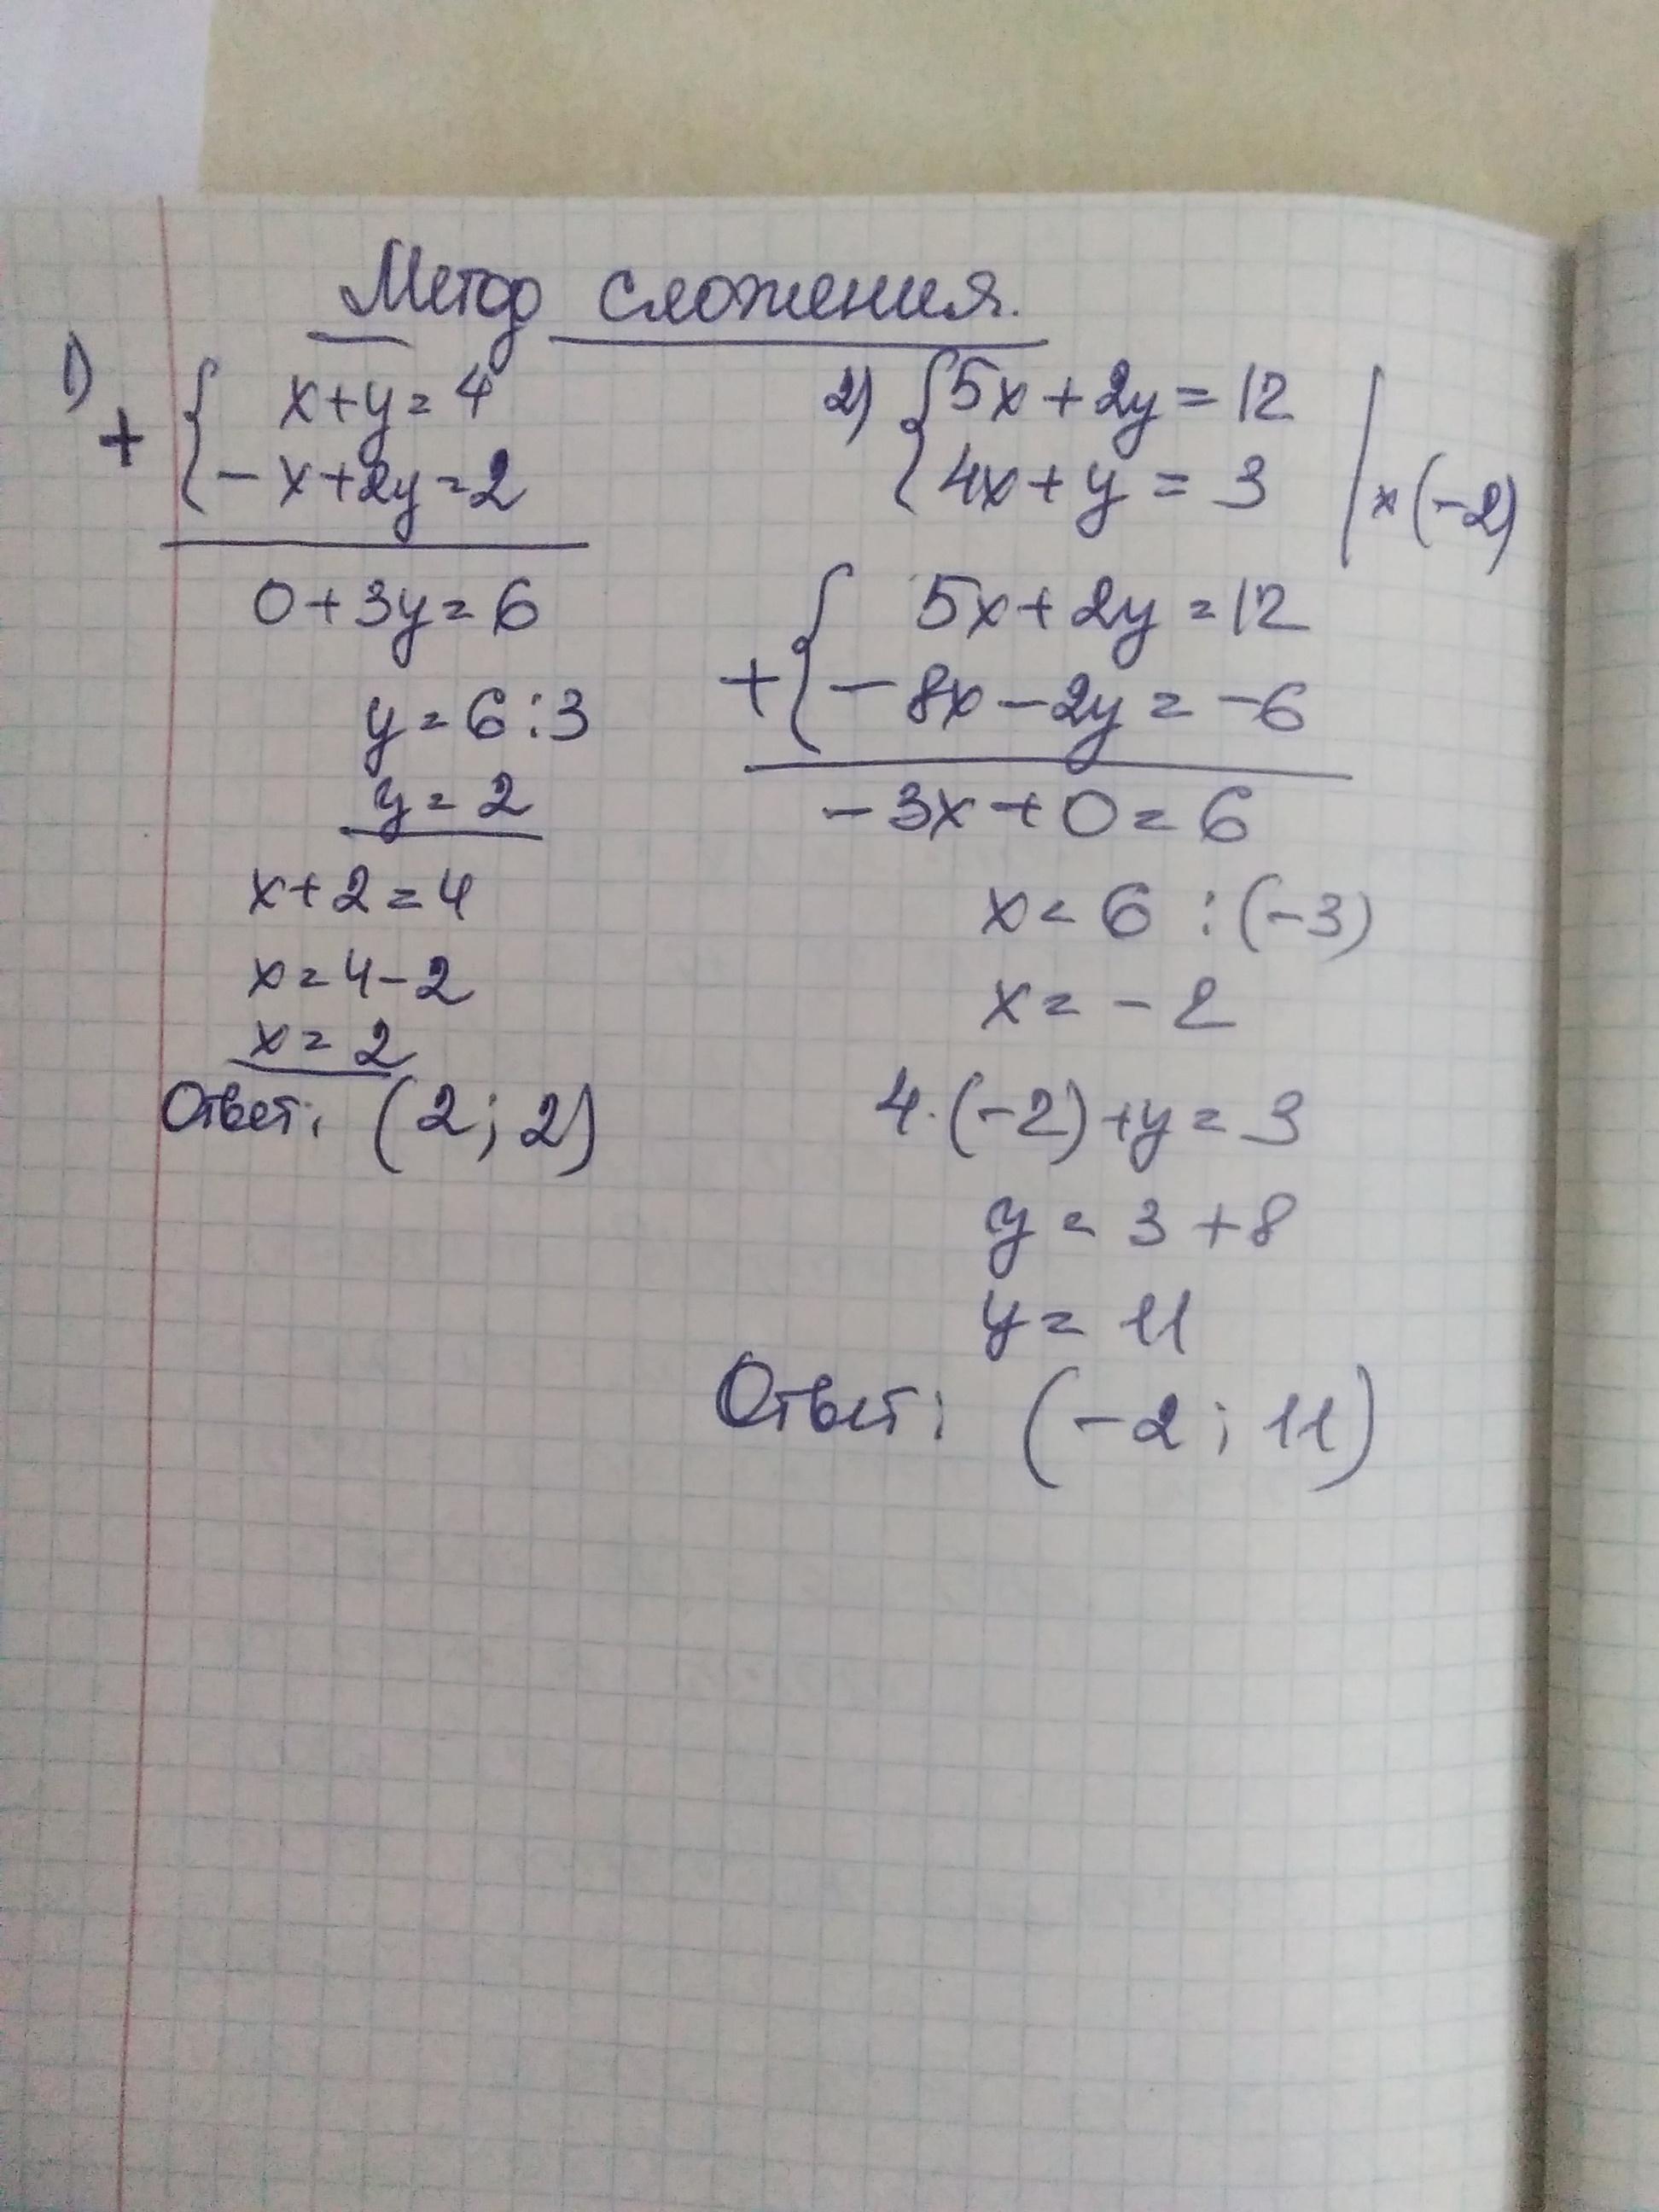 Метод сложения.
1)
+ { x+y=4
-x+2y=2
0+3y=6
y=6:3
y=2
x+2=4
x=4-2
x=2
Ответ: (2; 2)
2) { 5x+2y=12
4x+y=3 | ×(-2)
+ { 5x+2y=12
-8x-2y=-6
-3x+0=6
x=6:(-3)
x=-2
4·(-2)+y=3
y=3+8
y=11
Ответ: (-2; 11)